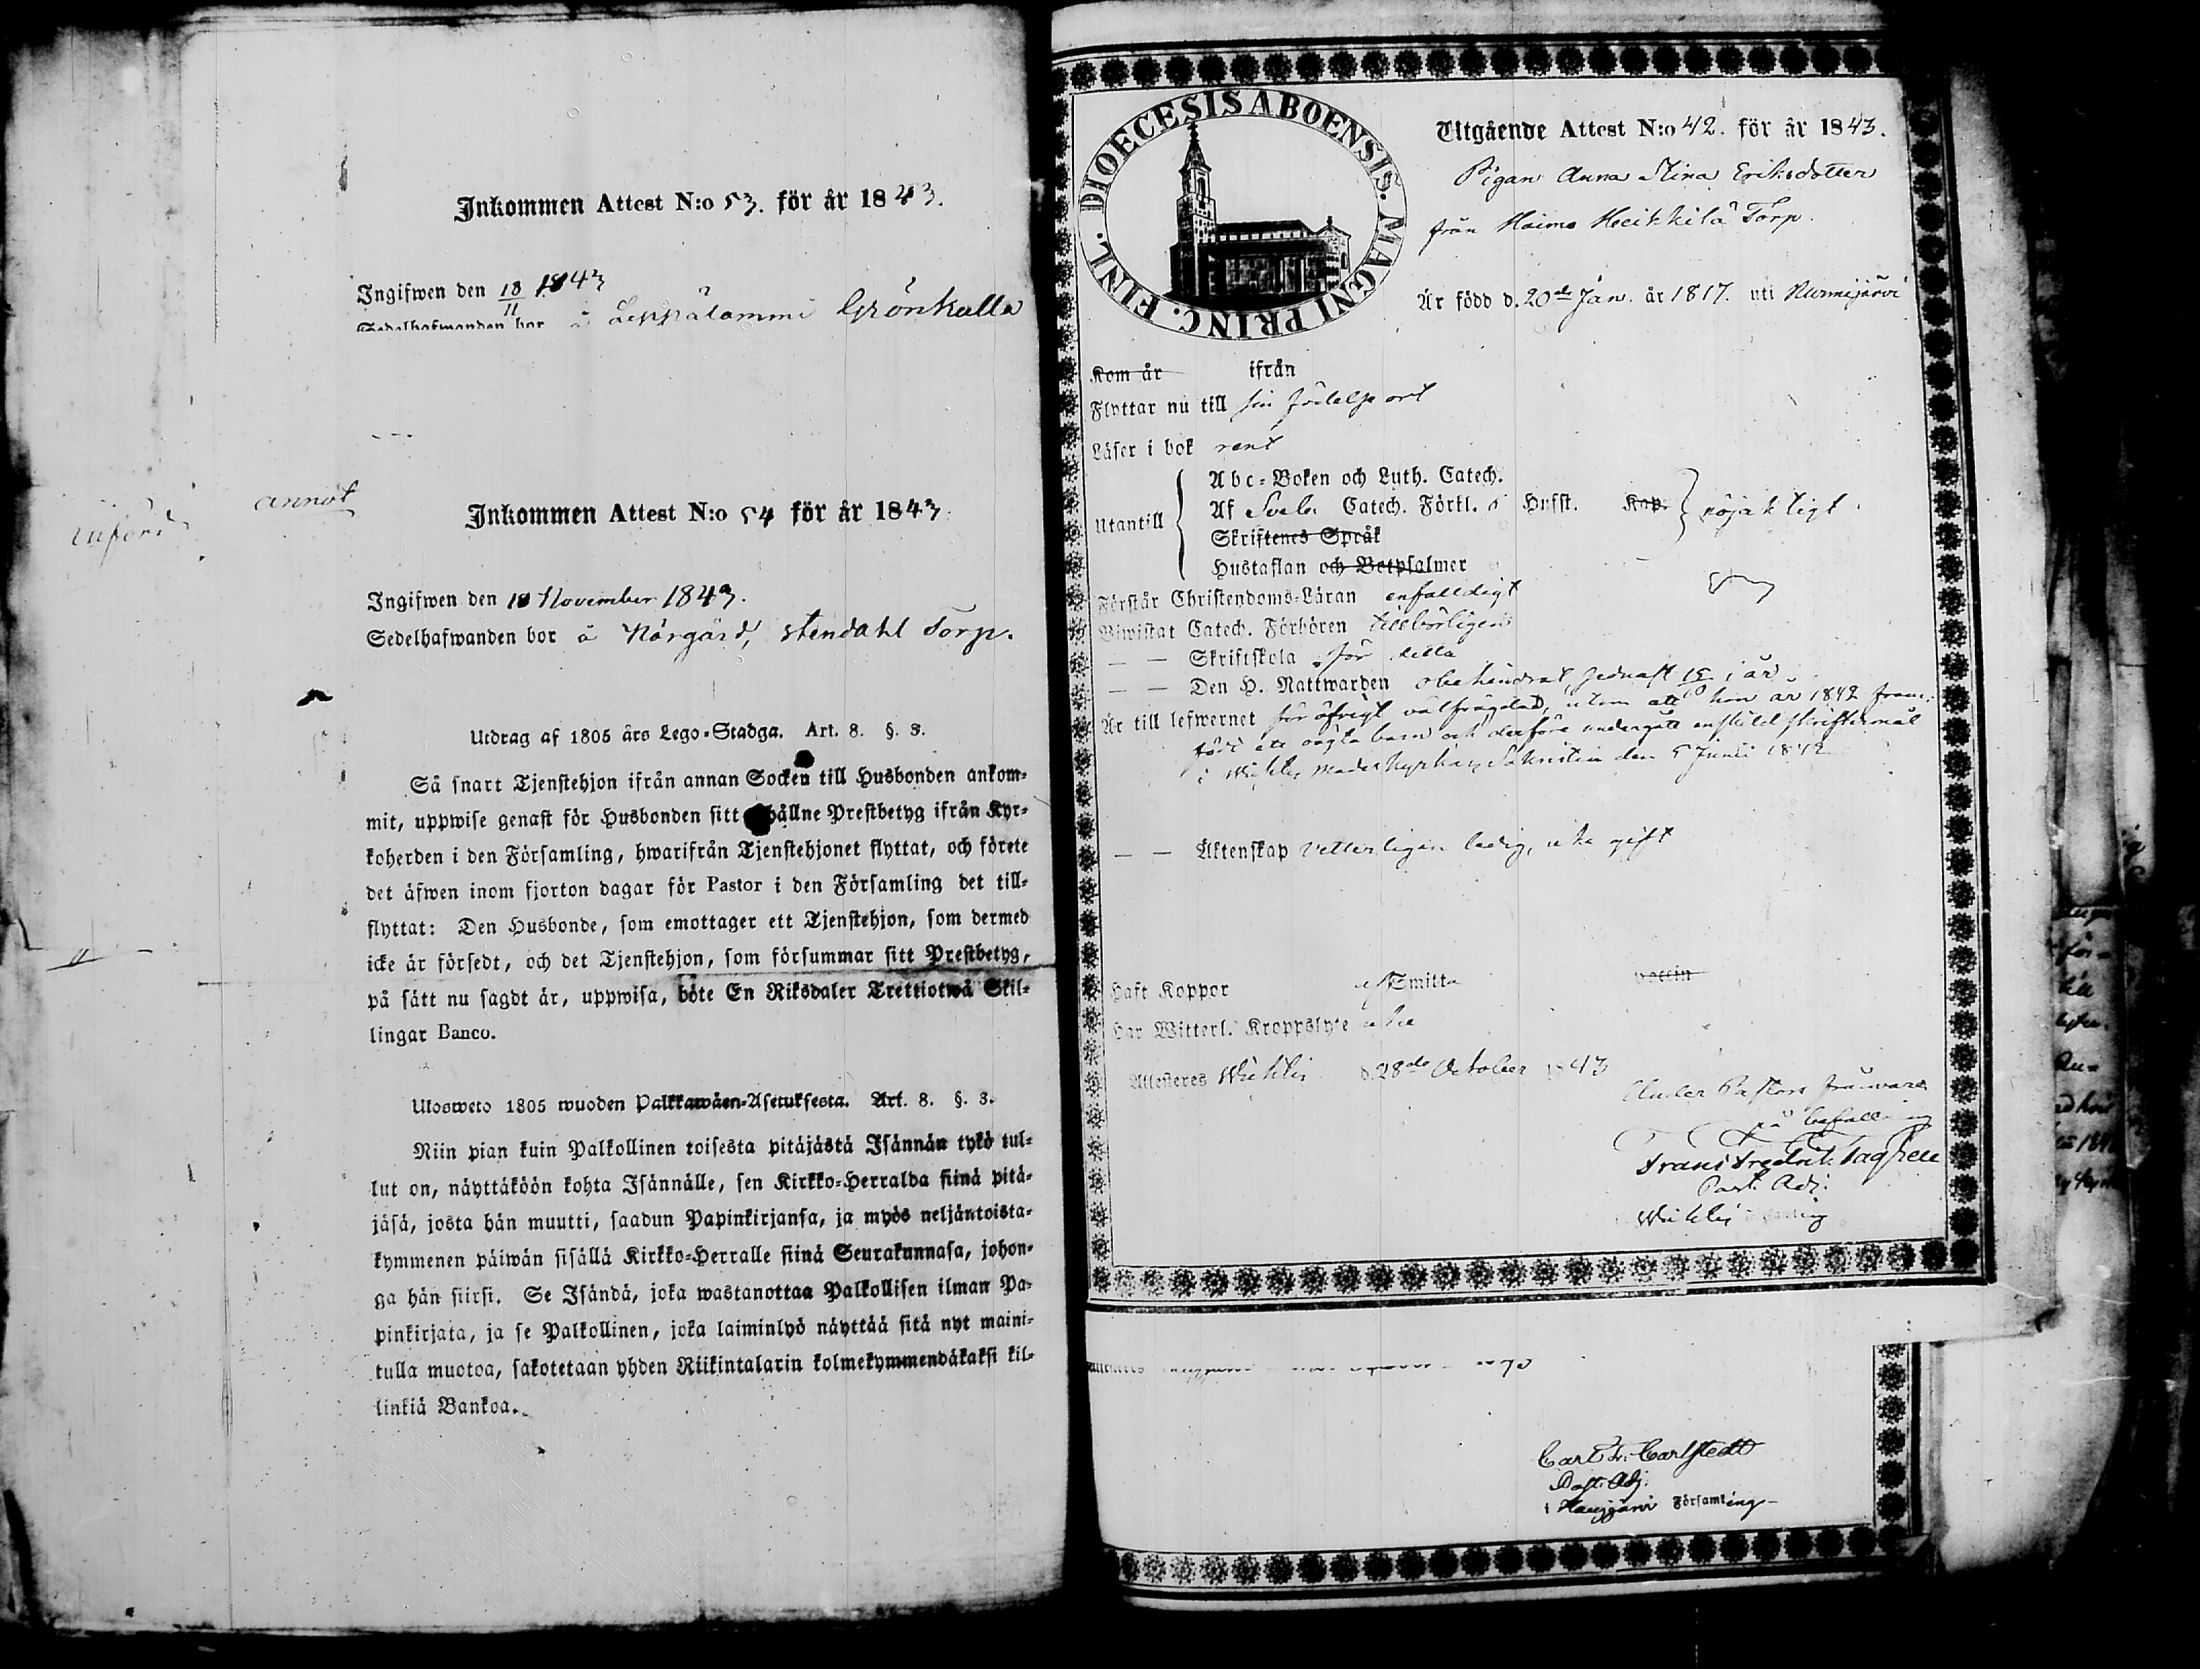 Inkommen Attest N:o 53. för år 1843.
Ingifwen den 18/11 1843
Sedelhafwanden bor å Leppälammi Grönkulla
införd
annot
Inkommen Attest N:o 54 för år 1843
Ingifwen den 18 November 1843.
Sedelhafwanden bor å Norgård, Stendahl Torp.
Utdrag af 1805 års Lego-Stadga. Art. 8. §. 3.
Så snart Tjenstehjon ifrån annan Socken till Husbonden ankom-
mit, uppwise genast för Husbonden sitt hållne Prestbetyg ifrån Kyr-
koherden i den Församling, hwarifrån Tjenstehjonet flyttat, och förete
det äfwen inom fjorton dagar för Pastor i den Församling det till-
flyttat: Den Husbonde, som emottager ett Tjenstehjon, som dermed
icke är försedt, och det Tjenstehjon, som försummar sitt Prestbetyg,
på sätt nu sagdt är, uppwisa, böte En Riksdaler Trettiotwå Skil-
lingar Banco.
Ulosweto 1805 wuoden Palkkawäen-Asetuksesta. Art. 8. §. 3.
Niin pian kuin Palkollinen toisesta pitäjästä Isännän tykö tul-
lut on, näyttäköön kohta Isännälle, sen Kirkko-Herralda siinä pitä-
jäsä, josta hän muutti, saadun Papinkirjansa, ja myös neljäntoista-
kymmenen päiwän sisällä Kirkko-Herralle siinä Seurakunnasa, johon-
ga hän siirsi. Se Isändä, joka wastanottaa Palkollisen ilman Pa-
pinkirjata, ja se Palkollinen, joka laiminlyö näyttää sitä nyt maini-
tulla muotoa, sakotetaan yhden Riikintalarin kolmekymmendäkaksi kil-
linkiä Bankoa.
DIOECESIS ABOENSIS. MAGNI PRINC. FINL.
Utgående Attest N:o 42. för år 1843.
Pigan Anna Stina Eriksdotter
från Haimo Heikkilä Torp.
Är född d. 20de Jan. år 1817. uti Nurmijärvi
Kom år ifrån
Flyttar nu till sin födelse ort
Läser i bok rent
Utantill
Abc-Boken och Luth. Catech.
Af Sveb. Catech. Förkl. Husst. Kap.
Skriftenes Språk
Hustaflan och Botpsalmer
nöjaktigt
Förstår Christendoms-Läran enfalldigt
Biwistat Catech. Förhören tillbörligen
— — Skriftskola för detta
— — Den H. Nattwarden obehindrat, sednast i år
Är till lefwernet för öfrigt välfrägdad, utom att hon år 1842 fram-
födt ett oägta barn och derföre undergått enskildt skriftermål
i Wichtis Moderkyrkas Sakristia den 5 Junii 1842
— — Äktenskap vetterligen ledig, icke gift
Haft Koppor af Smitta Vaccin
Har Witterl. Kroppslyte icke
Attesteres Wichtis d. 28de October 1843
Under Pastors frånvaro
på befallning
Frans Fredrik
Past. Adj.
Wichtis
Carl Carlstedt
Past. Adj.
i Hausjärvi Församling